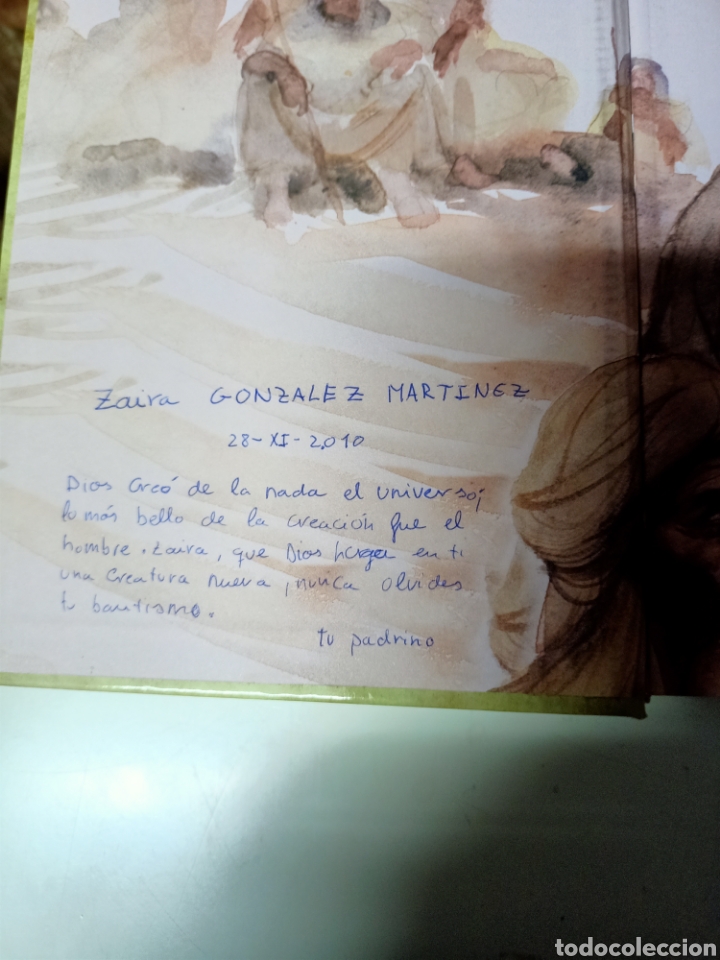 Zaira GONZALEZ MARTINEZ
28-XI-2.010
Dios creó de la nada el universo;
lo más bello de la creación fue el
hombre. Zaira, que Dios haga en ti
una creatura nueva, nunca olvides
tu bautismo.
tu padrino
todocoleccion